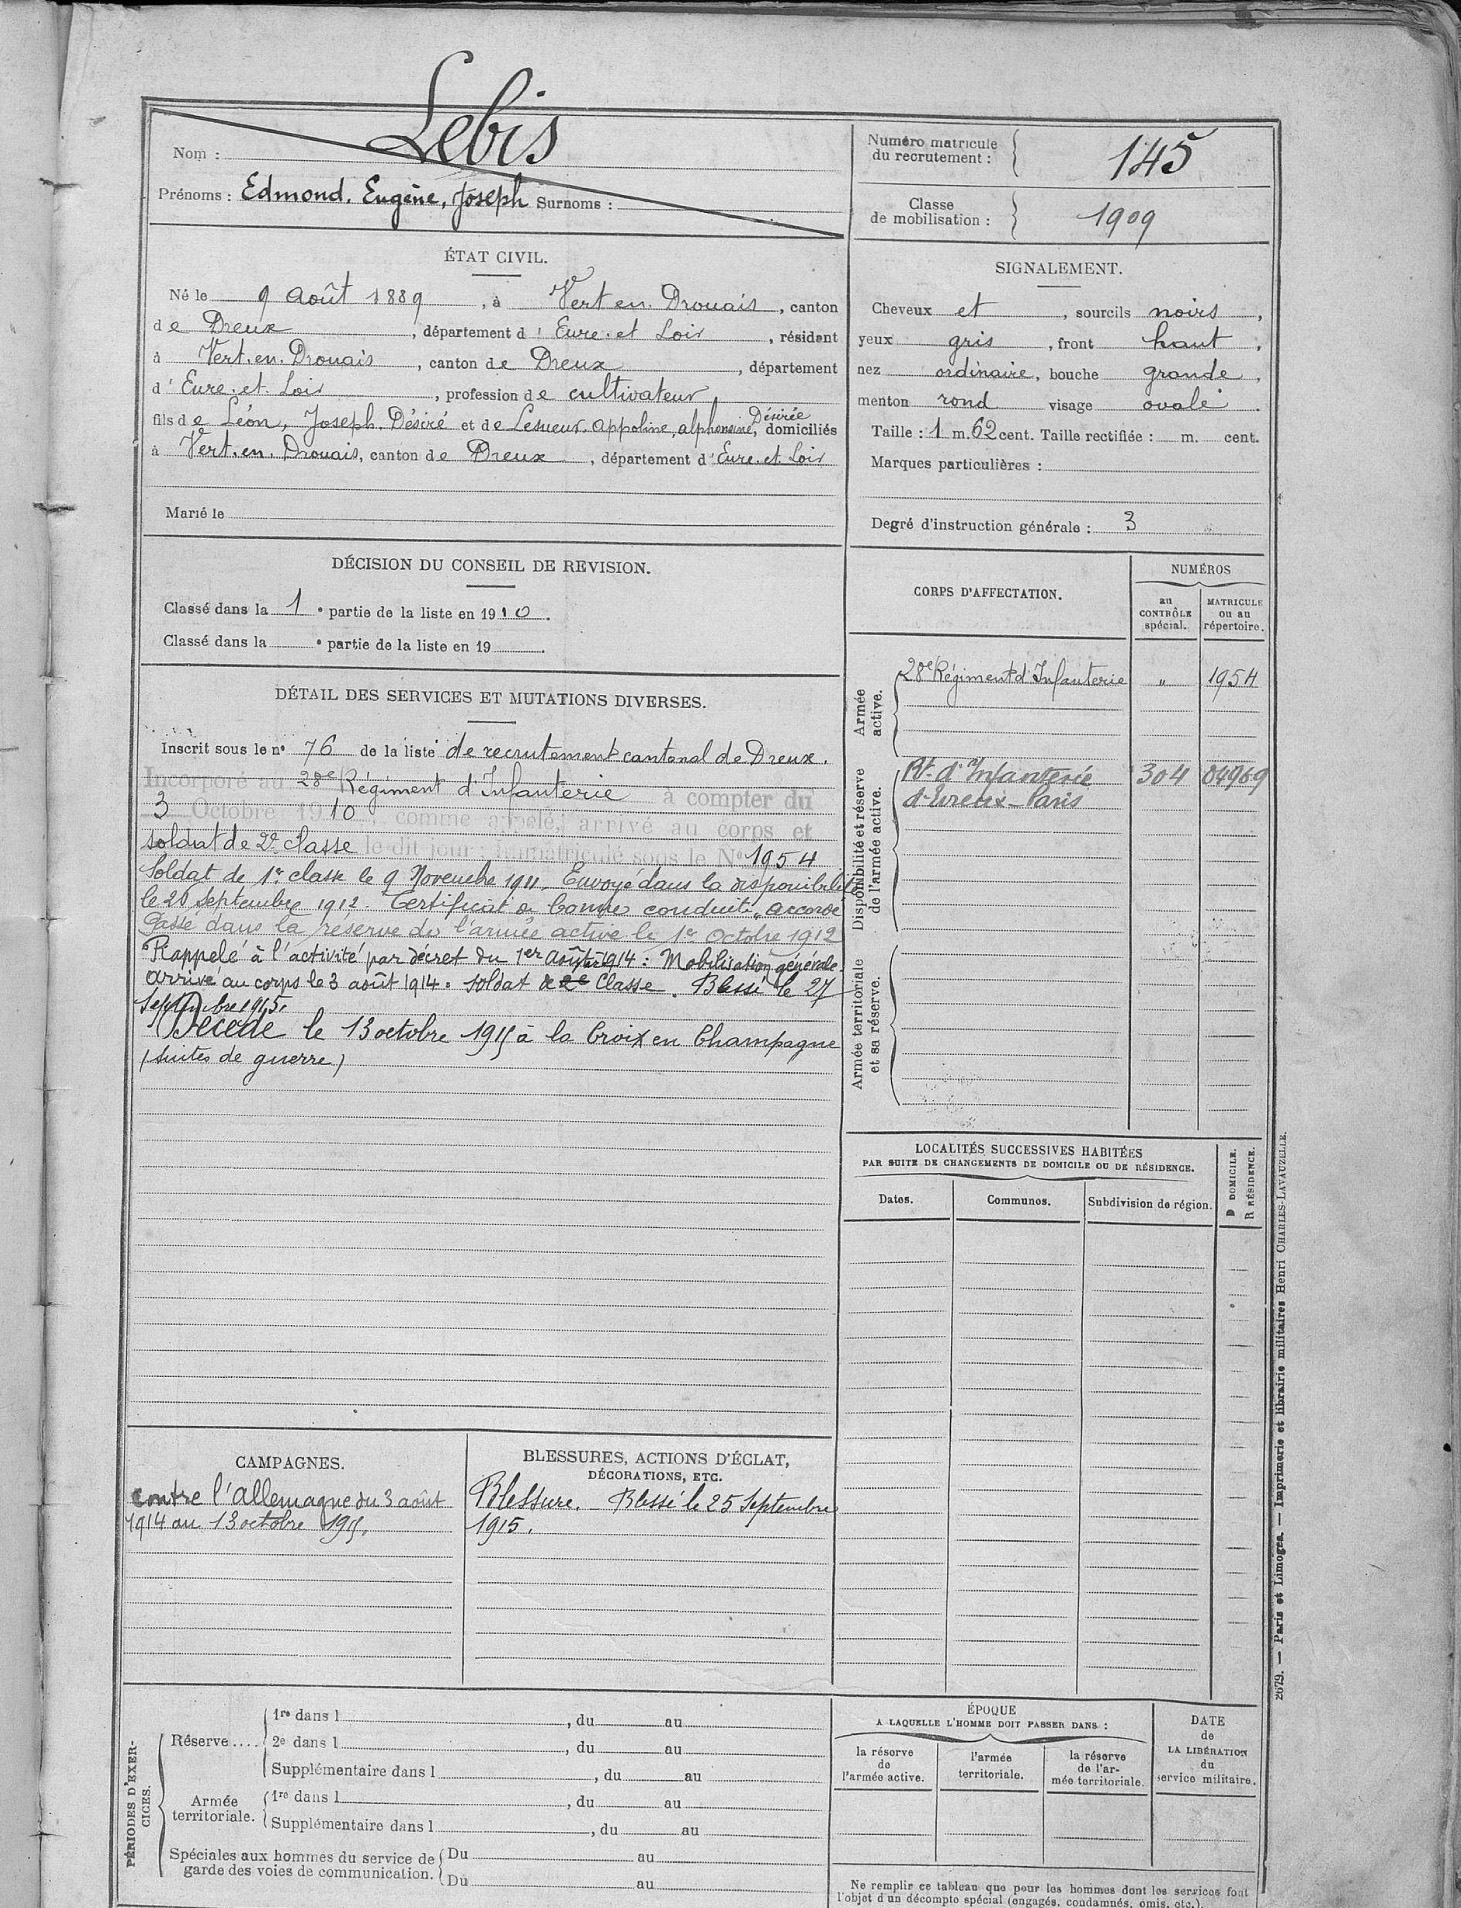 Lebis
Nom :
Prénoms : Edmond. Eugène, Joseph Surnoms :
Numéro matricule
du recrutement :
145
Classe
de mobilisation :
1909
ÉTAT CIVIL.
Né le 9 Août 1889, à Vert en. Drouais, canton
de Dreux, département d' Eure. et Loir, résident
à Vert. en. Drouais, canton de Dreux, département
d' Eure. et. Loir, profession de cultivateur
fils de Léon, Joseph. Désiré et de Lesueur. Appoline, alphonsine, Désirée domiciliés
à Vert. en. Drouais, canton de Dreux, département d' Eure. et. Loir
Marié le
SIGNALEMENT.
Cheveux et, sourcils noirs,
yeux gris, front haut,
nez ordinaire, bouche grande,
menton rond visage ovale
Taille : 1 m. 62 cent. Taille rectifiée : m. cent.
Marques particulières :
Degré d'instruction générale : 3
DÉCISION DU CONSEIL DE REVISION.
Classé dans la 1e partie de la liste en 1910.
Classé dans la e partie de la liste en 19
DÉTAIL DES SERVICES ET MUTATIONS DIVERSES.
Inscrit sous le no 76 de la liste de recrutement cantonal de Dreux.
Incorporé au 28e Régiment d'Infanterie à compter du
3 Octobre 1910, comme appelé, arrivé au corps et
soldat de 2e classe le dit jour; immatriculé sous le No 1954
Soldat de 1e classe le 9 Novembre 1911. Envoyé dans la disponibilité
le 20 septembre 1912. Certificat de bonne conduite accordé
Passé dans la réserve de l'armée active le 1e Octobre 1912
Rappelé à l'activité par décret du 1er août 1914 : Mobilisation générale.
Arrivé au corps le 3 août 1914. soldat de 2e Classe. Blessé le 27
septembre 1915.
Décédé le 13 octobre 1915 à la Croix en Champagne
(suites de guerre)
CORPS D'AFFECTATION.
NUMÉROS
au
CONTRÔLE
spécial.
MATRICULE
ou au
répertoire.
Armée
active.
28e Régiment d'Infanterie " 1954
Disponibilité et réserve
de l'armée active.
Rt. d'Infanterie 304 04969
d'Evreux-Paris
Armée territoriale
et sa réserve.
LOCALITÉS SUCCESSIVES HABITÉES
PAR SUITE DE CHANGEMENTS DE DOMICILE OU DE RÉSIDENCE.
Dates.
Communes.
Subdivision de région.
D DOMICILE.
R RÉSIDENCE.
CAMPAGNES.
contre l'allemagne du 3 août
1914 au 13 octobre 1915.
BLESSURES, ACTIONS D'ÉCLAT,
DÉCORATIONS, ETC.
Blessure. Blessé le 25 Septembre
1915.
PÉRIODES D'EXER-
CICES.
Réserve....
1re dans l, du au
2e dans l, du au
Supplémentaire dans l, du au
Armée
territoriale.
1re dans l, du au
Supplémentaire dans l, du au
Spéciales aux hommes du service de
garde des voies de communication.
Du au
Du au
ÉPOQUE
A LAQUELLE L'HOMME DOIT PASSER DANS :
la réserve
de
l'armée active.
l'armée
territoriale.
la réserve
de l'ar-
mée territoriale.
DATE
de
LA LIBÉRATION
du
service militaire.
Ne remplir ce tableau que pour les hommes dont les services font
l'objet d'un décompte spécial (engagés, condamnés, omis, etc.).
2679. — Paris et Limoges. — Imprimerie et librairie militaires Henri CHARLES-LAVAUZELLE.